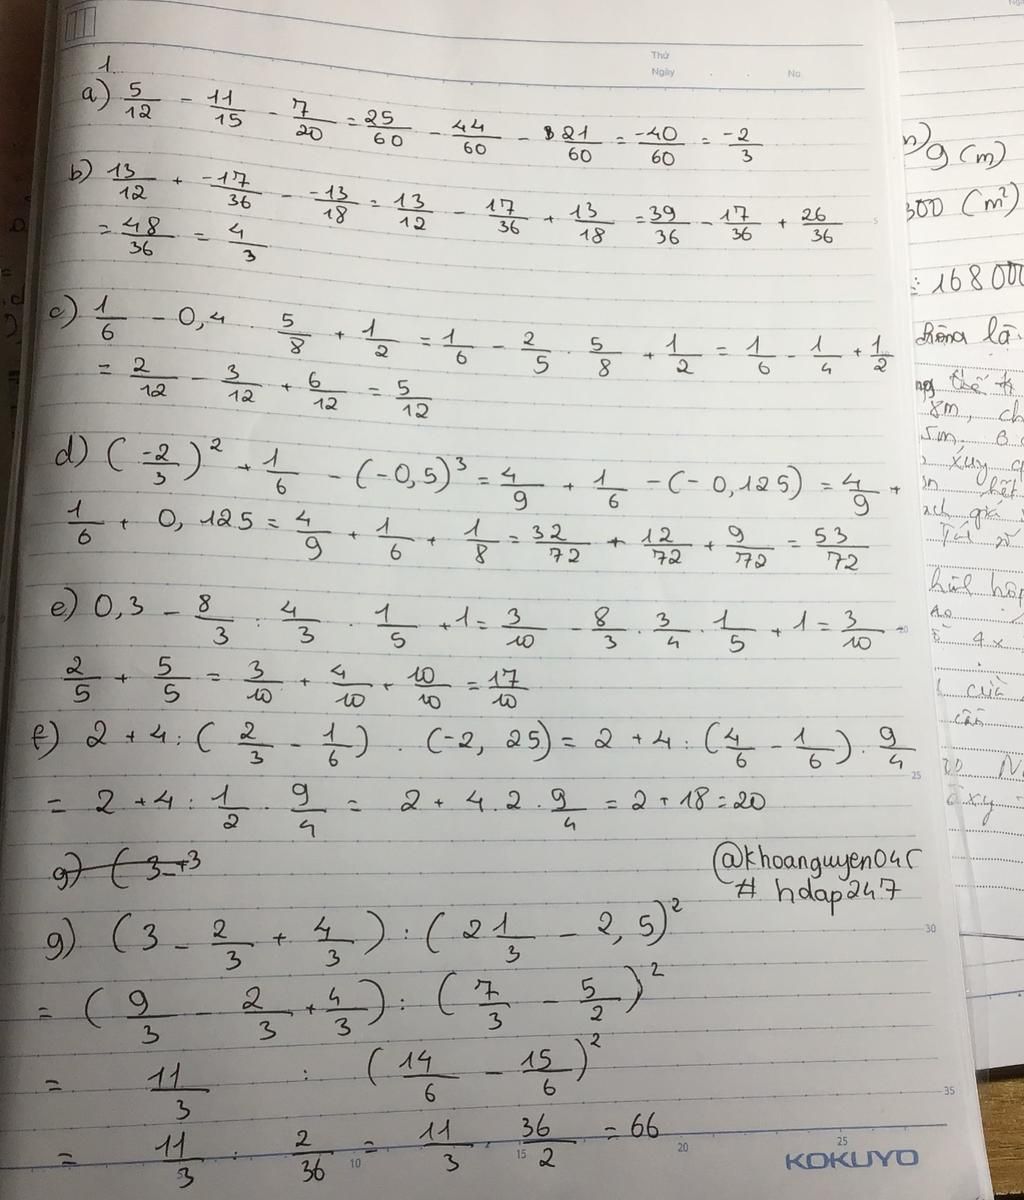 Thứ
Ngày . . No.
1.
a) 5/12 - 11/15 - 7/20 = 25/60 - 44/60 - 21/60 = -40/60 = -2/3
b) 13/12 + -17/36 - -13/18 = 13/12 - 17/36 + 13/18 = 39/36 - 17/36 + 26/36
= 48/36 = 4/3
c) 1/6 - 0,4 . 5/8 + 1/2 = 1/6 - 2/5 . 5/8 + 1/2 = 1/6 - 1/4 + 1/2
= 2/12 - 3/12 + 6/12 = 5/12
d) (-2/3)² + 1/6 - (-0,5)³ = 4/9 + 1/6 - (-0,125) = 4/9 +
1/6 + 0,125 = 4/9 + 1/6 + 1/8 = 32/72 + 12/72 + 9/72 = 53/72
e) 0,3 - 8/3 : 4/3 . 1/5 + 1 = 3/10 - 8/3 . 3/4 . 1/5 + 1 = 3/10 -
2/5 + 5/5 = 3/10 + 4/10 + 10/10 = 17/10
f) 2 + 4 : (2/3 - 1/6) . (-2,25) = 2 + 4 : (4/6 - 1/6) . 9/4
= 2 + 4 : 1/2 . 9/4 = 2 + 4 . 2 . 9/4 = 2 + 18 = 20
@khoanguyen04(
# hdap247
g) (3 - 2/3 + 4/3) : (2 1/3 - 2,5)²
= (9/3 - 2/3 + 4/3) : (7/3 - 5/2)²
= 11/3 : (14/6 - 15/6)²
= 11/3 : 2/36 = 11/3 . 36/2 = 66
5 10 15 20 25
25
30
35
KOKUYO
9 (m)
300 (m²)
= 168 000
8m, ch
5m,
xuy
hết
giá
hình hộp
4 x
của
cần